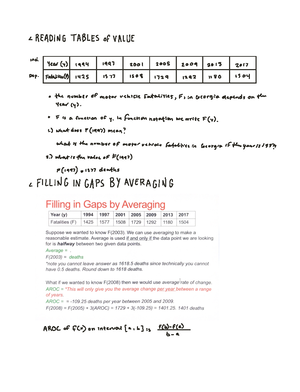 2. READING TABLES of VALUE
ind. Year (y) 1994 1997 2001 2005 2009 2013 2017
dep. Fatalities(F) 1425 1577 1508 1729 1292 1180 1504
• the number of motor vehicle fatalities, F, in Georgia depends on the
Year (y).
• F is a function of y. In function notation we write F(y).
1.) what does F(1997) mean?
what is the number of motor vehicle fatalities in Georgia if the year is
2.) what is the value of F(1997)
F(1997) = 1577 deaths
2. FILLING IN GAPS BY AVERAGING
Filling in Gaps by Averaging
Year (y) 1994 1997 2001 2005 2009 2013 2017
Fatalities (F) 1425 1577 1508 1729 1292 1180 1504
Suppose we wanted to know F(2003). We can use averaging to make a
reasonable estimate. Average is used if and only if the data point we are looking
for is halfway between two given data points.
Average =
F(2003) ≈ deaths
*note you cannot leave answer as 1618.5 deaths since technically you cannot
have 0.5 deaths. Round down to 1618 deaths.
What if we wanted to know F(2008) then we would use average rate of change.
AROC = *This will only give you the average change per year between a range
of years.
AROC = = -109.25 deaths per year between 2005 and 2009.
F(2008) = F(2005) + 3(AROC) = 1729 + 3(-109.25) = 1401.25 1401 deaths
AROC of F(x) on interval [a, b] is F(b)-F(a)
b-a